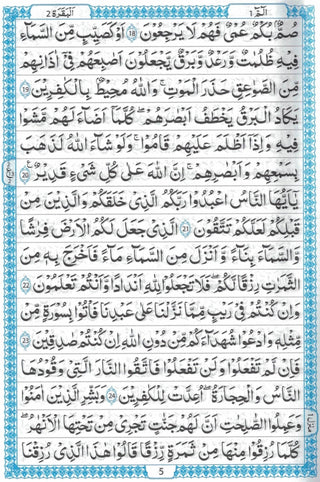 الٓمّٓ ١
البقرة ٢
صُمٌّۢ بُكْمٌ عُمْیٌ فَهُمْ لَا یَرْجِعُوْنَ ۙ﴿18﴾ اَوْ كَصَیِّبٍ مِّنَ السَّمَآءِ
فِیْهِ ظُلُمٰتٌ وَّرَعْدٌ وَّبَرْقٌ ۚ یَجْعَلُوْنَ اَصَابِعَهُمْ فِیْۤ اٰذَانِهِمْ
مِّنَ الصَّوَاعِقِ حَذَرَ الْمَوْتِ ؕ وَاللّٰهُ مُحِیْطٌۢ بِالْكٰفِرِیْنَ ﴿19﴾
یَكَادُ الْبَرْقُ یَخْطَفُ اَبْصَارَهُمْ ؕ كُلَّمَاۤ اَضَآءَ لَهُمْ مَّشَوْا
فِیْهِ ۙ وَاِذَاۤ اَظْلَمَ عَلَیْهِمْ قَامُوْا ؕ وَلَوْ شَآءَ اللّٰهُ لَذَهَبَ
بِسَمْعِهِمْ وَاَبْصَارِهِمْ ؕ اِنَّ اللّٰهَ عَلٰی كُلِّ شَیْءٍ قَدِیْرٌ ﴿20﴾
یٰۤاَیُّهَا النَّاسُ اعْبُدُوْا رَبَّكُمُ الَّذِیْ خَلَقَكُمْ وَالَّذِیْنَ مِنْ
قَبْلِكُمْ لَعَلَّكُمْ تَتَّقُوْنَ ۙ﴿21﴾ الَّذِیْ جَعَلَ لَكُمُ الْاَرْضَ فِرَاشًا
وَّالسَّمَآءَ بِنَآءً ۪ وَّاَنْزَلَ مِنَ السَّمَآءِ مَآءً فَاَخْرَجَ بِهٖ مِنَ
الثَّمَرٰتِ رِزْقًا لَّكُمْ ۚ فَلَا تَجْعَلُوْا لِلّٰهِ اَنْدَادًا وَّاَنْتُمْ تَعْلَمُوْنَ ﴿22﴾
وَاِنْ كُنْتُمْ فِیْ رَیْبٍ مِّمَّا نَزَّلْنَا عَلٰی عَبْدِنَا فَاْتُوْا بِسُوْرَةٍ مِّنْ
مِّثْلِهٖ ۪ وَادْعُوْا شُهَدَآءَكُمْ مِّنْ دُوْنِ اللّٰهِ اِنْ كُنْتُمْ صٰدِقِیْنَ ﴿23﴾
فَاِنْ لَّمْ تَفْعَلُوْا وَلَنْ تَفْعَلُوْا فَاتَّقُوا النَّارَ الَّتِیْ وَقُوْدُهَا
النَّاسُ وَالْحِجَارَةُ ۚ اُعِدَّتْ لِلْكٰفِرِیْنَ ﴿24﴾ وَبَشِّرِ الَّذِیْنَ اٰمَنُوْا
وَعَمِلُوا الصّٰلِحٰتِ اَنَّ لَهُمْ جَنّٰتٍ تَجْرِیْ مِنْ تَحْتِهَا الْاَنْهٰرُ ؕ
كُلَّمَا رُزِقُوْا مِنْهَا مِنْ ثَمَرَةٍ رِّزْقًا ۙ قَالُوْا هٰذَا الَّذِیْ رُزِقْنَا
5